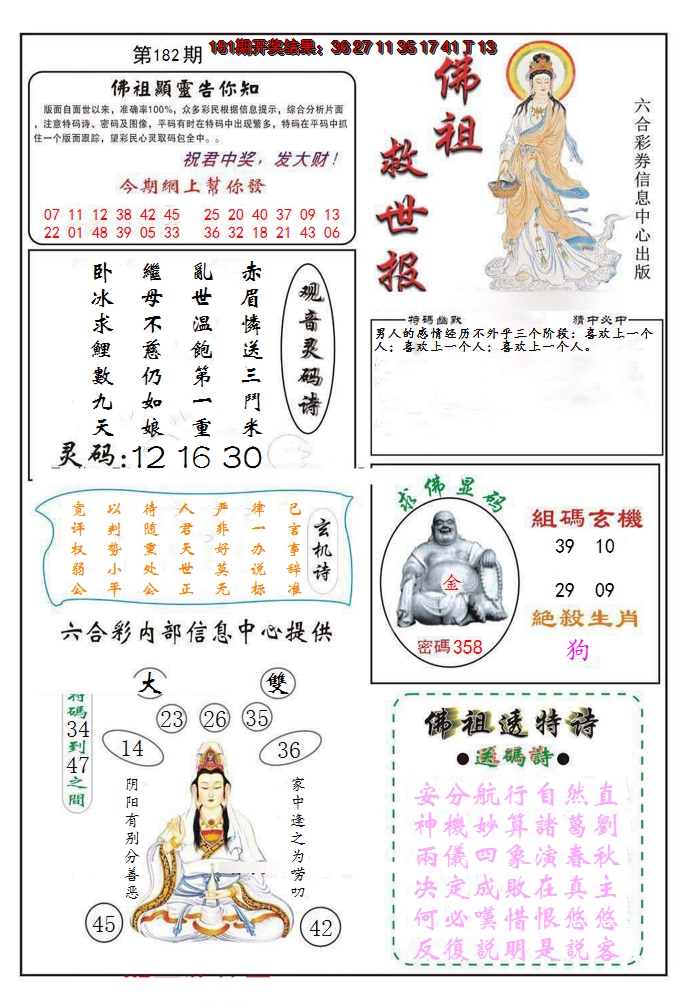 第182期
181期开奖结果：36 27 11 35 17 41 丁 13
佛祖顯靈告你知
版面自面世以来，准确率100%，众多彩民根据信息提示，综合分析片面
，注意特码诗、密码及图像，平码有时在特码中出现繁多，特码在平码中抓
住一个版面跟踪，望彩民心灵取码包全中。。
祝君中奖，发大财！
今期網上幫你發
07 11 12 38 42 45 25 20 40 37 09 13
22 01 48 39 05 33 36 32 18 21 43 06
佛祖
救世报
六合彩券信息中心出版
观音灵码诗
赤眉憐送三鬥米
亂世温飽第一重
繼母不慈仍如娘
卧冰求鯉數九天
灵码:12 16 30
特碼幽默
猜中必中
男人的感情经历不外乎三个阶段：喜欢上一个
人；喜欢上一个人；喜欢上一个人。
玄机诗
己言事辞准
律一办说标
严非好莫无
人君天世正
待随重处公
以判势小平
宽评权弱公
六合彩内部信息中心提供
求佛显码
金
密碼358
組碼玄機
39 10
29 09
絶殺生肖
狗
大
雙
特碼34到47之間
23
26
35
14
36
阴阳有别分善恶
家中逢之为唠叨
45
42
佛祖透特诗
●送碼詩●
安分航行自然直
神機妙算諸葛劉
雨儀四象演春秋
决定成敗在真主
何必嘆惜恨悠悠
反復説明是説客